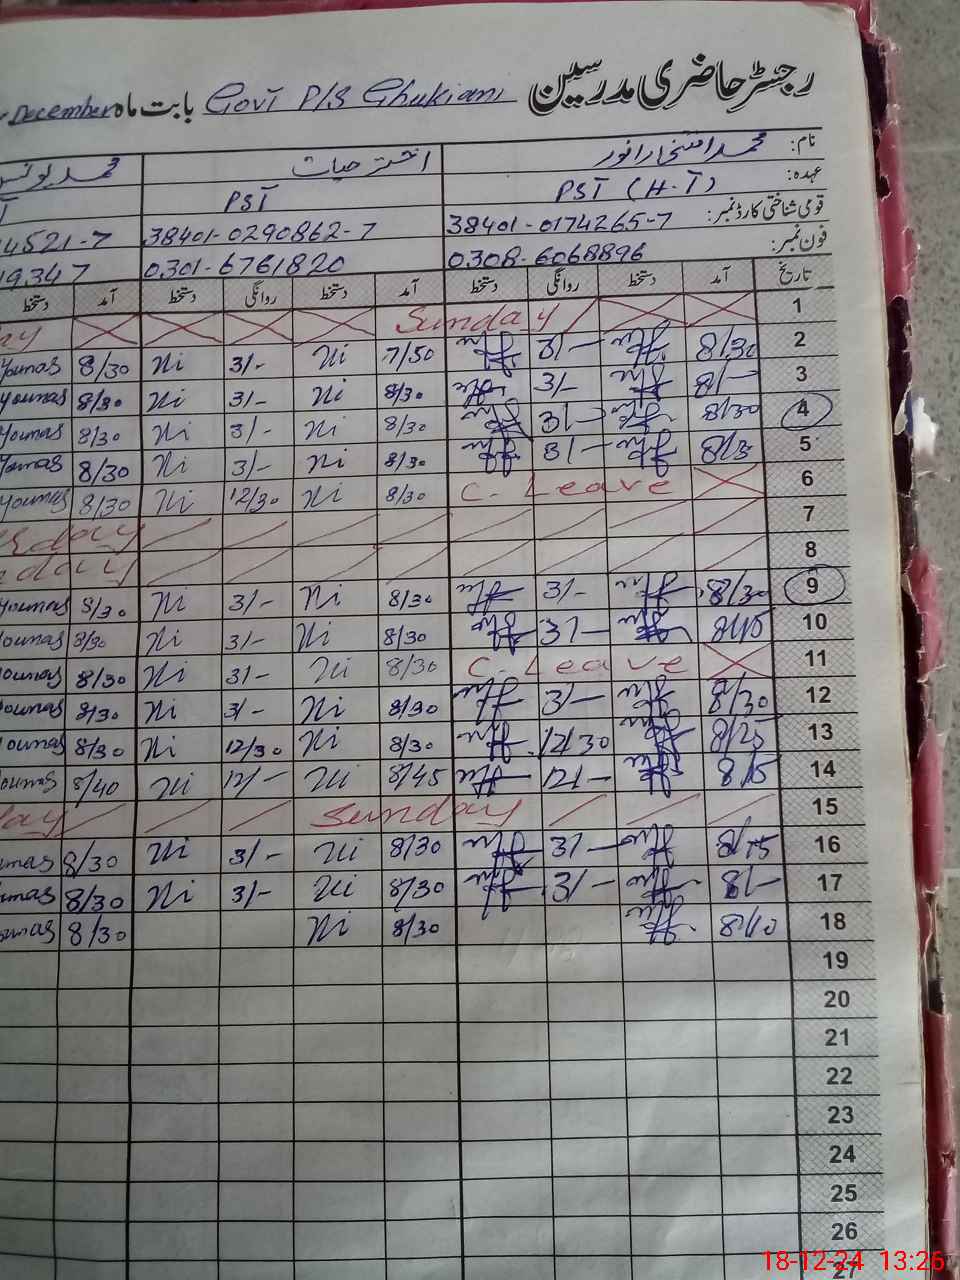 رجسٹر حاضری مدرسین Govt P/S Ghukiani بابت ماہ December
نام: محمد افتخار انور اختر حیات محمد یونس
عہدہ: PST (H.T) PST
قومی شناختی کارڈ نمبر: 38401-0174265-7 38401-0290862-7 4521-7
فون نمبر: 0308-6068896 0301-6761820 19347
تاریخ آمد دستخط روانگی دستخط آمد دستخط روانگی دستخط آمد دستخط
1 Sunday
2 8/30 3/- 7/50 Ni 3/- Ni 8/30 Younas
3 8/- 3/- 8/30 Ni 3/- Ni 8/30 Younas
4 8/30 3/- 8/30 Ni 3/- Ni 8/30 Younas
5 3/- 8/30 Ni 3/- Ni 8/30 Younas
6 C. Leave 8/30 Ni 12/30 Ni 8/30 Younas
7
8
9 8/30 3/- 8/30 Ni 3/- Ni 8/30 Younas
10 8/15 3/- 8/30 Ni 3/- Ni 8/30 ounas
11 C. Leave 8/30 Ni 3/- Ni 8/30 ounas
12 8/30 3/- 8/30 Ni 3/- Ni 8/30 ounas
13 8/25 12/30 8/30 Ni 12/30 Ni 8/30 ounas
14 8/15 12/- 8/45 Ni 12/- Ni 8/40 ounas
15 Sunday
16 8/15 3/- 8/30 Ni 3/- Ni 8/30 unas
17 8/- 3/- 8/30 Ni 3/- Ni 8/30 unas
18 8/10 8/30 Ni 8/30 unas
19
20
21
22
23
24
25
26
27
18-12-24 13:26